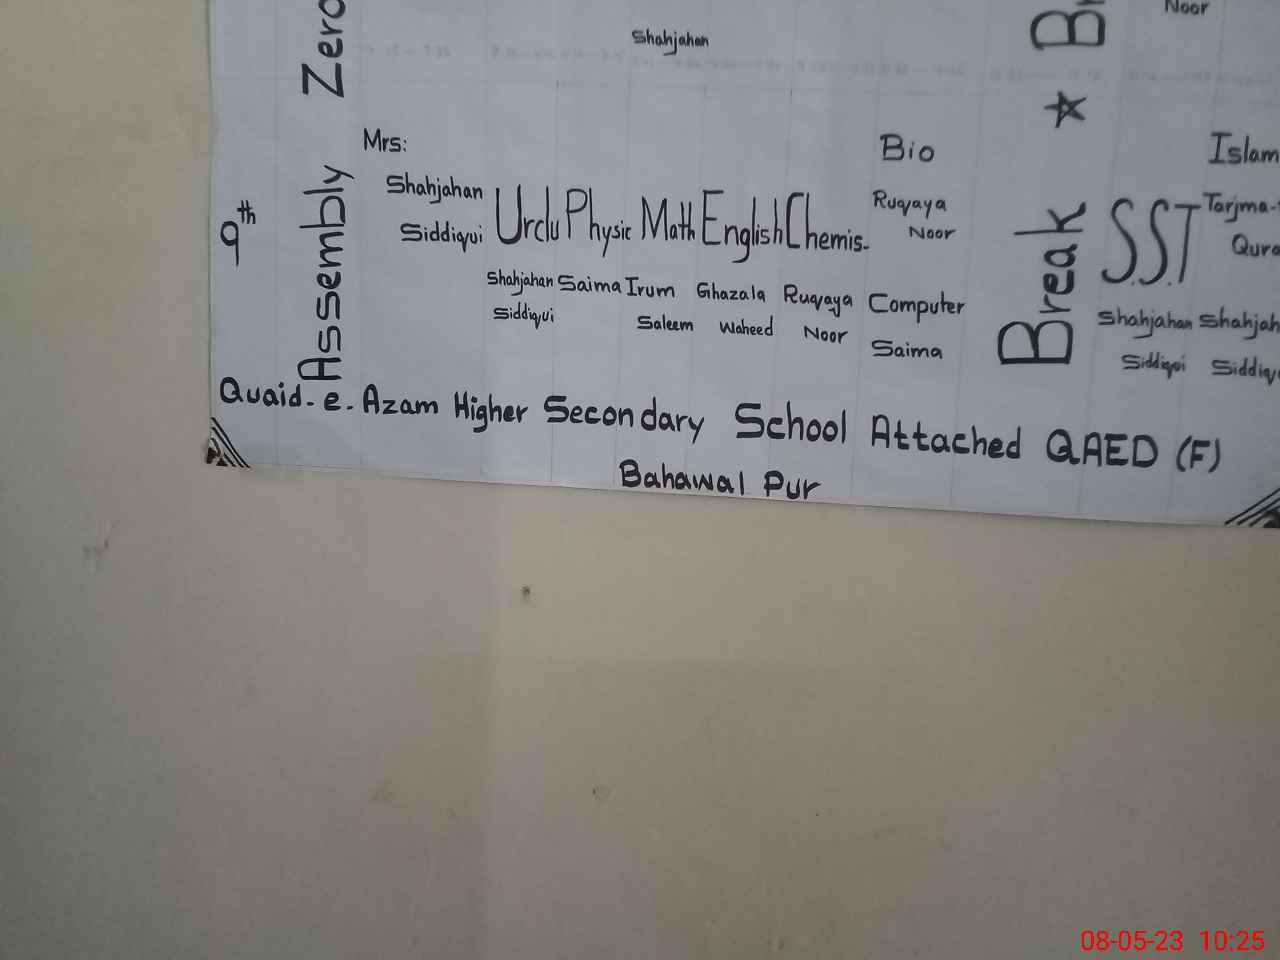 Zero
Shahjahan
B
Noor
9th
Assembly
Mrs:
Shahjahan
Siddiqui
Urdu
Shahjahan
Siddiqui
Physic
Saima
Math
Irum
Saleem
English
Ghazala
Waheed
Chemis-
Ruqaya
Noor
Bio
Ruqaya
Noor
Computer
Saima
Break
S.S.T
Shahjahan
Siddiqui
Islam
Tarjma-
Qura
Shahjah
Siddiq
Quaid-e-Azam Higher Secondary School Attached QAED (F)
Bahawal Pur
08-05-23 10:25